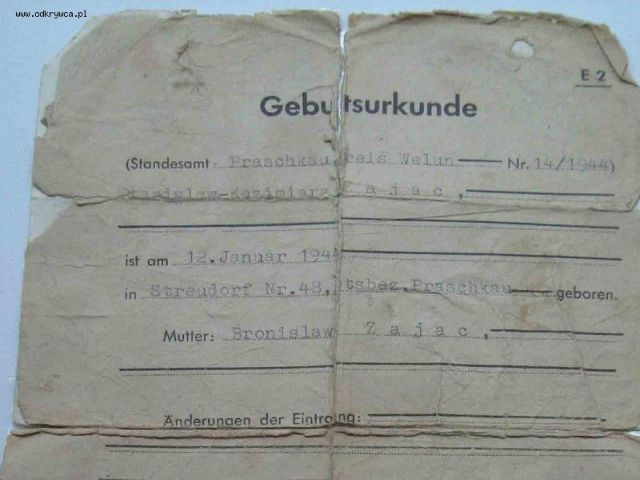 www.odkrywca.pl
E 2
Geburtsurkunde
(Standesamt Praschkau, Kreis Welun Nr. 14/1944)
Stanislaw-Kazimierz Z a j a c ,
ist am 12.Januar 1944
in Streudorf Nr.48, tsbez.Praschkau geboren.
Mutter: Bronislaw Z a j a c ,
Änderungen der Eintragung: